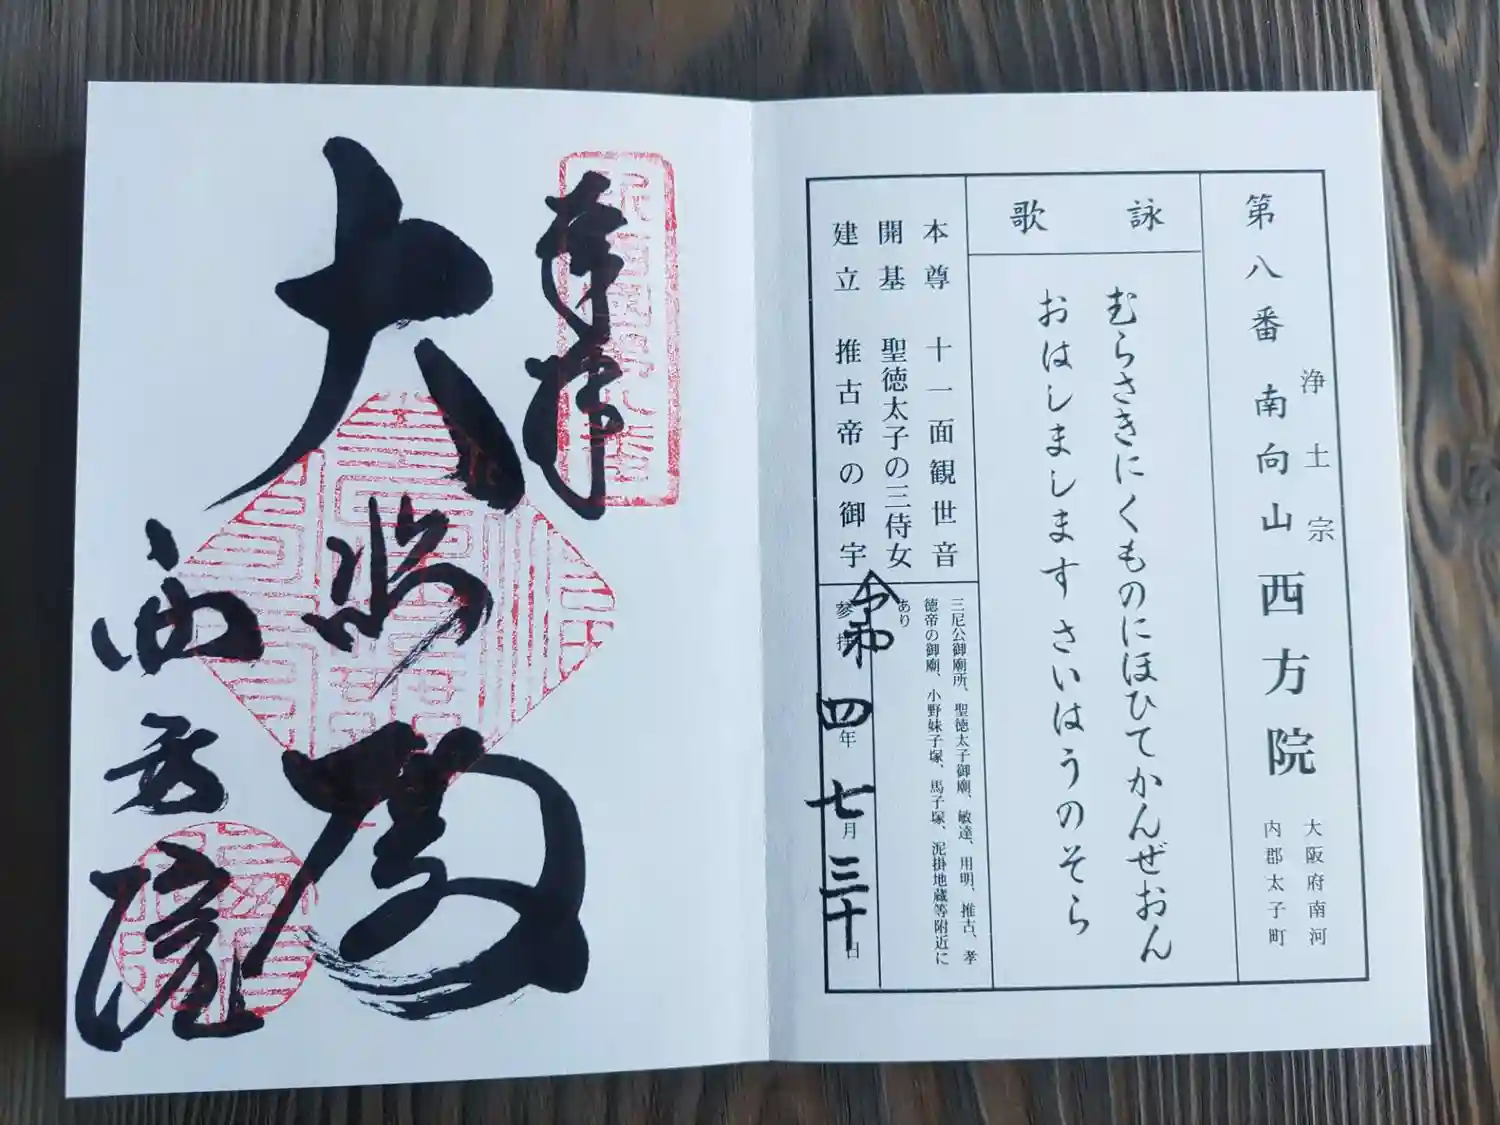 第八番 南向山 西方院
浄土宗
大阪府南河
内郡太子町
詠歌
むらさきにくものにほひてかんぜおん
おはしましますさいはうのそら
本尊 十一面観世音
開基 聖徳太子の三侍女
建立 推古帝の御宇
三尼公御廟所、聖徳太子御廟、敏達、用明、推古、孝
徳帝の御廟、小野妹子塚、馬子塚、泥掛地蔵等附近に
あり
参拝 令和四年七月三十日
奉拝
大悲閣
西方院